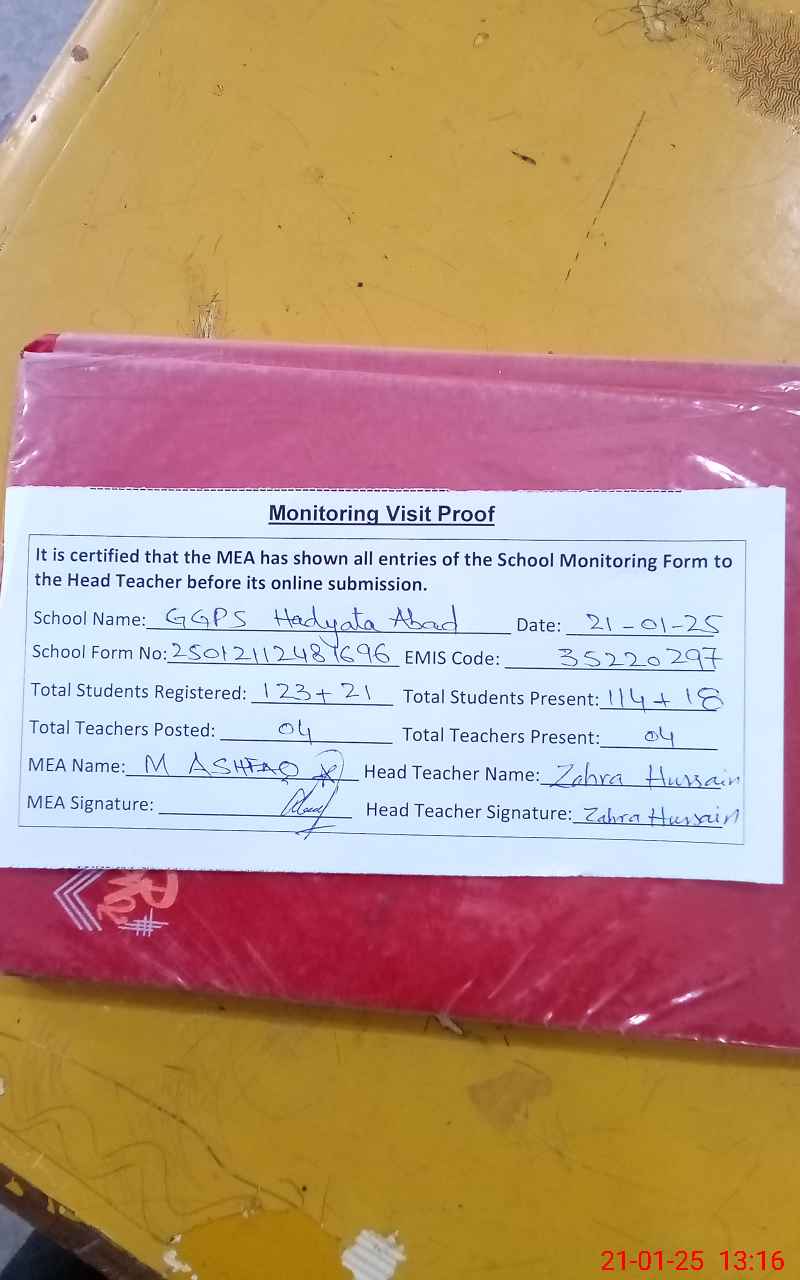 Monitoring Visit Proof
It is certified that the MEA has shown all entries of the School Monitoring Form to
the Head Teacher before its online submission.
School Name: GGPS Hadyata Abad Date: 21-01-25
School Form No: 25012112487696 EMIS Code: 35220297
Total Students Registered: 123+21 Total Students Present: 114+18
Total Teachers Posted: 04 Total Teachers Present: 04
MEA Name: M ASHFAQ Head Teacher Name: Zahra Hussain
MEA Signature: Head Teacher Signature: Zahra Hussain
21-01-25 13:16